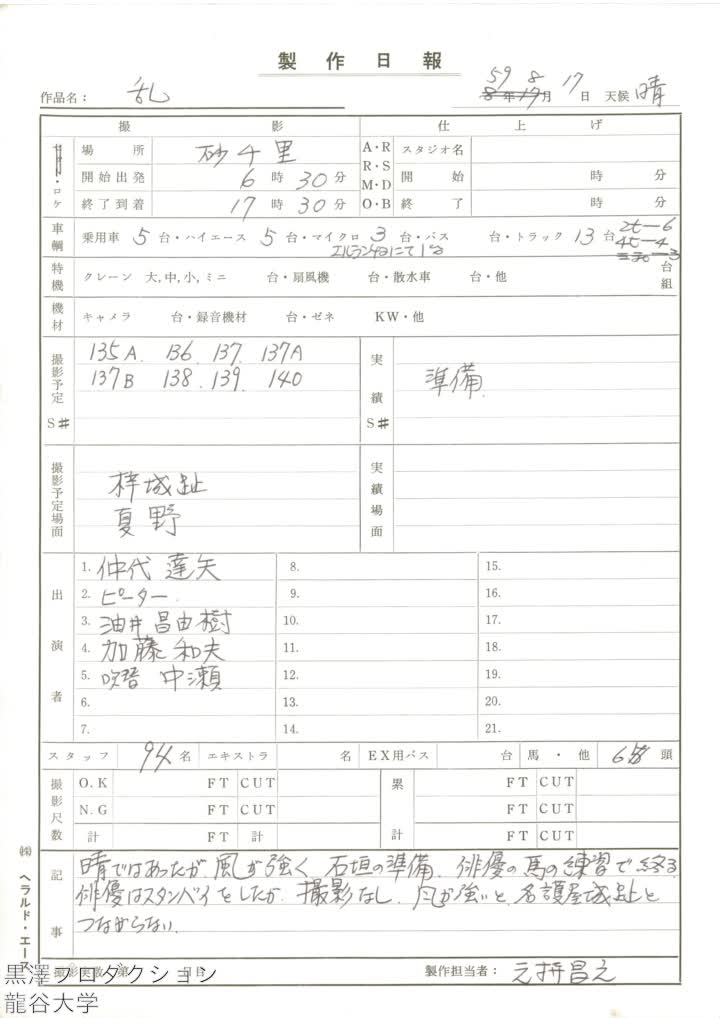 製作日報
作品名： 乱
59 8 17
8年17月 日 天候 晴
撮影 仕上げ
セット・ロケ
場所 砂千里 A・R スタジオ名
開始出発 6時30分 R・S M・D 開始 時 分
終了到着 17時30分 O・B 終了 時 分
車輌 乗用車 5 台・ハイエース 5 台・マイクロ 3 台・バス 台・トラック 13 台 2t-6
4t-4
特機 クレーン 大,中,小,ミニ 台・扇風機 台・散水車 台・他 台組
機材 キャメラ 台・録音機材 台・ゼネ KW・他
撮影予定 S# 135A. 136. 137. 137A
137B 138. 139. 140
実績 S# 準備
撮影予定場面 梓城趾
夏野
実績場面
出演者
1. 仲代達矢 8. 15.
2. ピーター 9. 16.
3. 油井昌由樹 10. 17.
4. 加藤和夫 11. 18.
5. 吹替 中瀬 12. 19.
6. 13. 20.
7. 14. 21.
スタッフ 名 エキストラ 名 EX用バス 台 馬・他 頭
撮影尺数 O.K FT CUT 累計 FT CUT
N.G FT CUT FT CUT
計 FT 計 FT CUT
記事 晴ではあったが風が強く、石垣の準備、俳優の馬の練習で終る
俳優はスタンバイをしたが、撮影なし。風が強いと名護屋城趾と
つながらない。
㈱ヘラルド・エース
撮影実数 第 日目 製作担当者：
黒澤プロダクション
龍谷大学